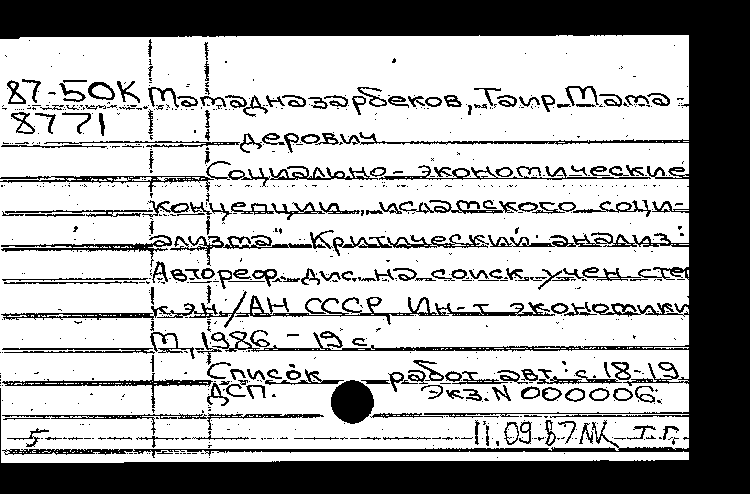 87-50К Маmадназарбеков, Таир Мама-
8771
дерович
Социально-экономические
концепции "исламского соци-
ализма" Критический анализ:
Автореф. дис. на соиск учен. степ
к.эн./АН СССР, Ин-т экономики
М, 1986. - 19 с.
Список работ авт.: с. 18-19
ДСП. Экз. N 000006.
5 11.09.87 Т.Г.